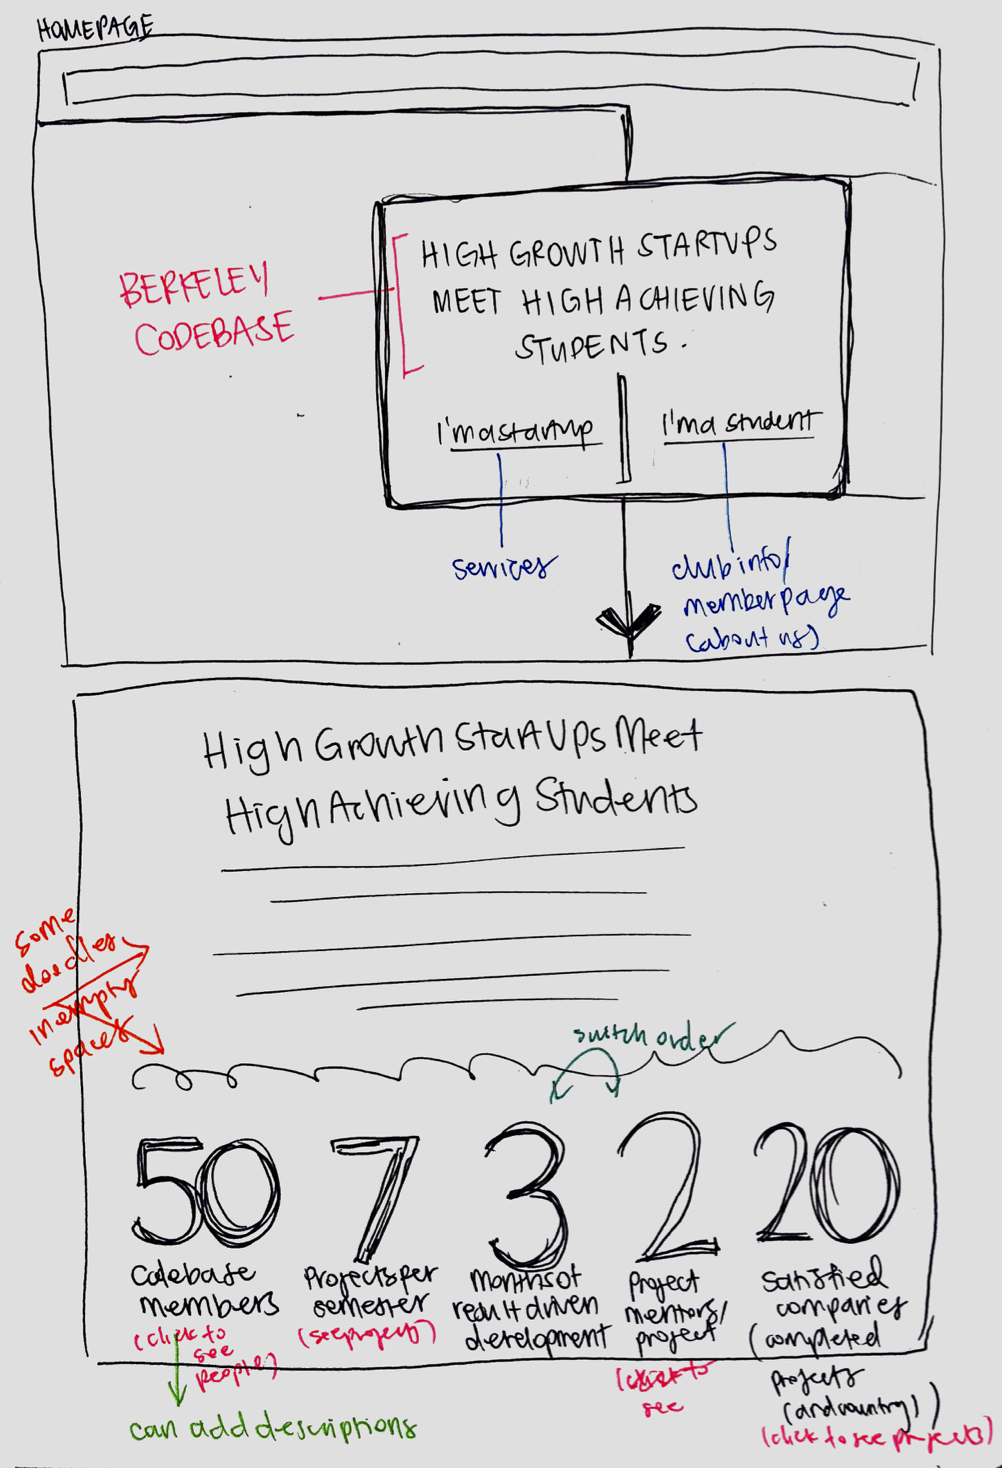 HOMEPAGE
BERKELEY
CODEBASE
HIGH GROWTH STARTUPS
MEET HIGH ACHIEVING
STUDENTS.
I'm a startup
I'm a student
services
club info/
member page
(about us)
High Growth StartUps Meet
High Achieving Students
some
doodles
in empty
spaces
switch order
50
Codebase
members
(click to
see
people)
can add descriptions
7
Projects per
semester
(see project)
3
months of
result driven
development
2
Project
mentors/
project
(click to
see
20
satisfied
companies
(completed
projects
(and country))
(click to see projects)